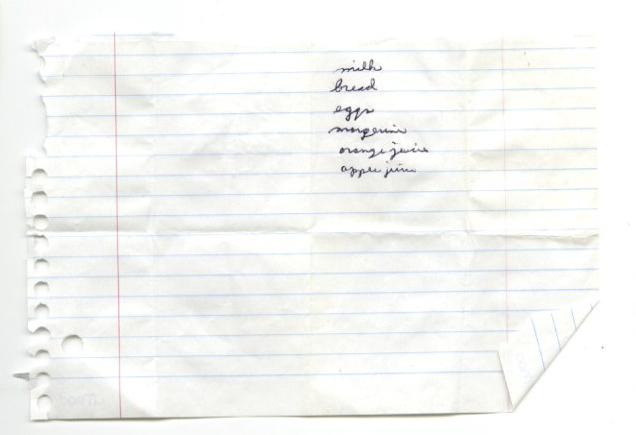 milk
bread
eggs
margerine
orange juice
apple juice